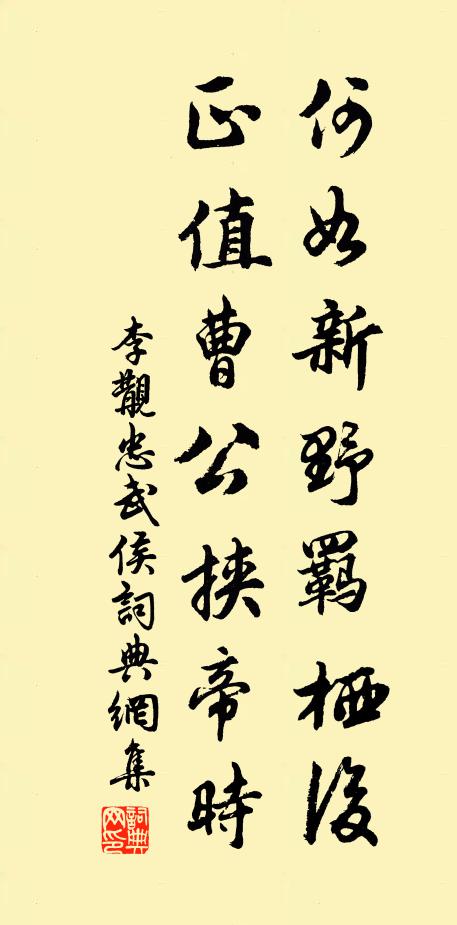 何如新野羈栖後
正值曹公挾帝時
李覯忠武侯詞典網集
詞典網印